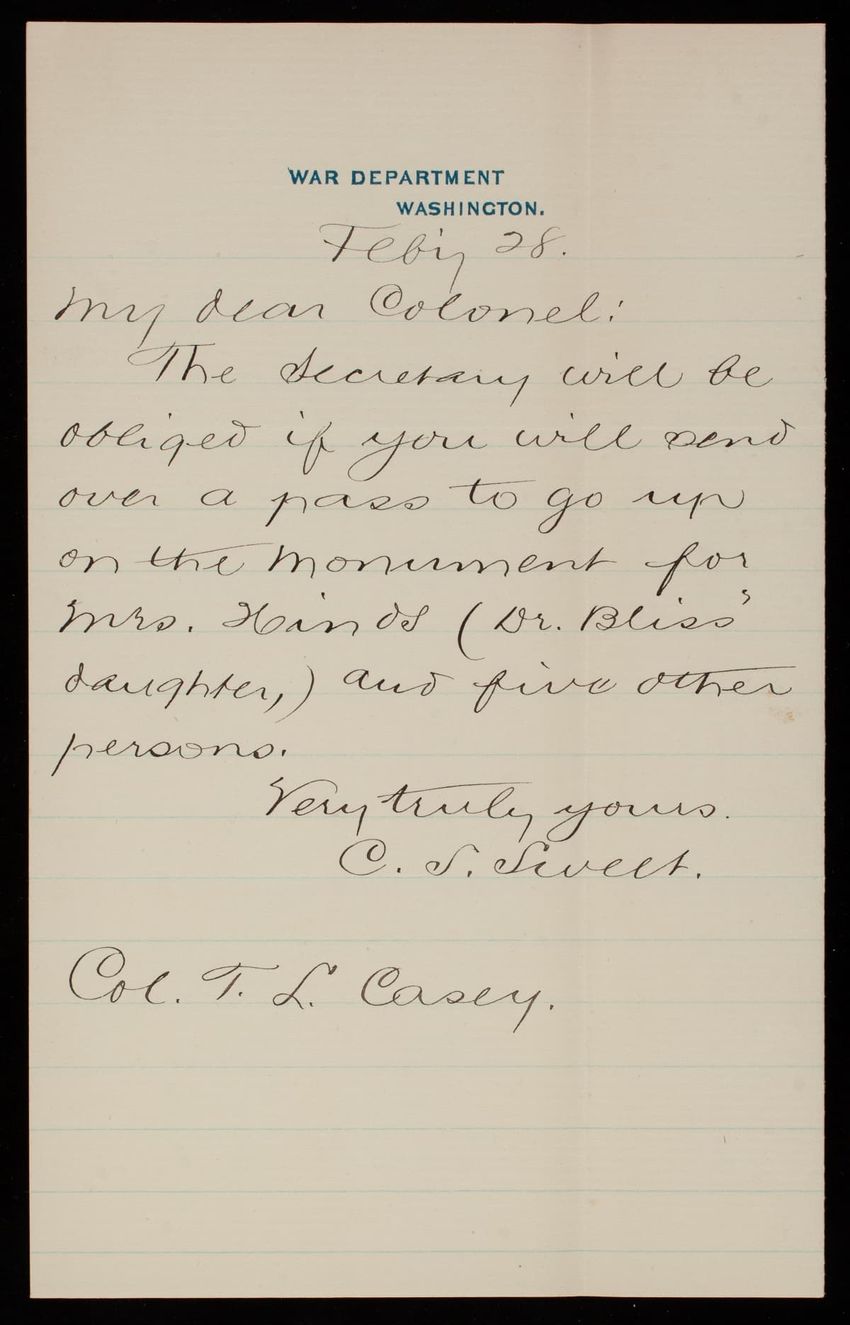 WAR DEPARTMENT
WASHINGTON.
Feb'y 28.
My dear Colonel:
The Secretary will be
obliged if you will send
over a pass to go up
on the Monument for
Mrs. Hinds (Dr. Bliss'
daughter,) and five other
persons.
Very truly yours.
C. S. Sweet.
Col. T. L. Casey.